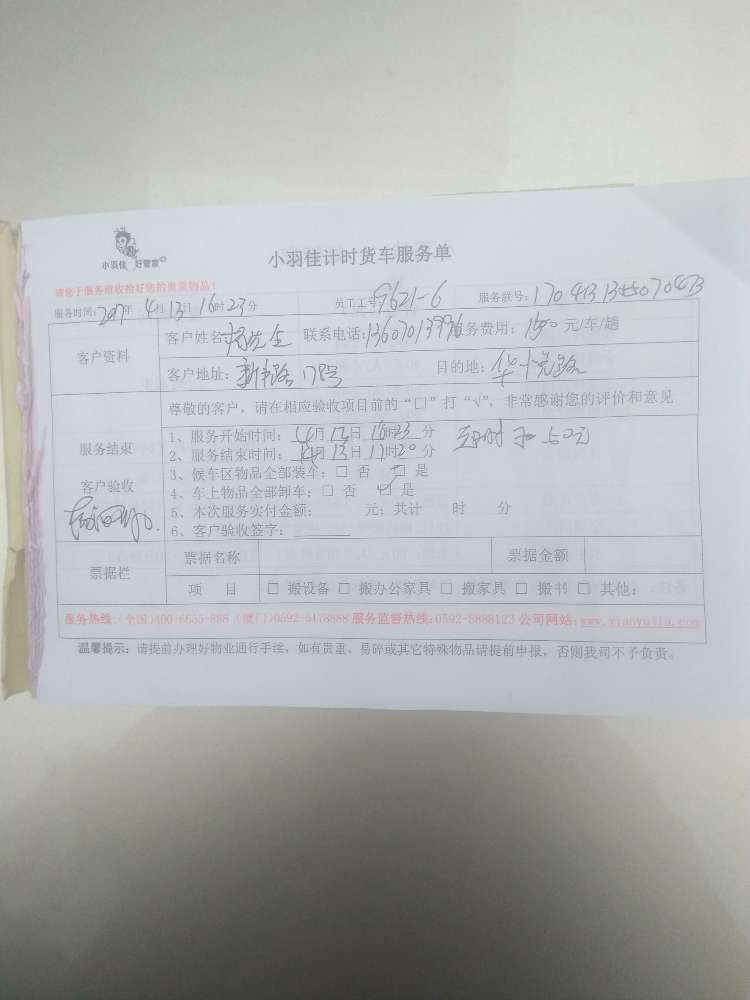 小羽佳 好管家
小羽佳计时货车服务单
请您于服务前收拾好您的贵重物品!
服务时间:2017年 4月 13日 16时 23分 员工工号9621-6 服务联号:
客户资料
客户姓名 先生 联系电话: 服务费用: 元/车/趟
客户地址: 目的地:
尊敬的客户,请在相应验收项目前的“□”打“√”,非常感谢您的评价和意见
服务结束
客户验收
1、服务开始时间: 4月 日 时23分 扣50元
2、服务结束时间: 4月 13日 17时20分
3、候车区物品全部装车:□ 否 □ 是
4、车上物品全部卸车:□ 否 □ 是
5、本次服务实付金额: 元;共计 时 分
6、客户验收签字:
票据栏
票据名称 票据金额
项 目 □ 搬设备 □ 搬办公家具 □ 搬家具 □ 搬书 □ 其他:
服务热线:(全国)400-6655-888 (厦门)0592-5178888 服务监督热线:0592-5888123 公司网站:www.xiaoyujia.com
温馨提示:请提前办理好物业通行手续,如有贵重、易碎或其它特殊物品请提前申报,否则我司不予负责。